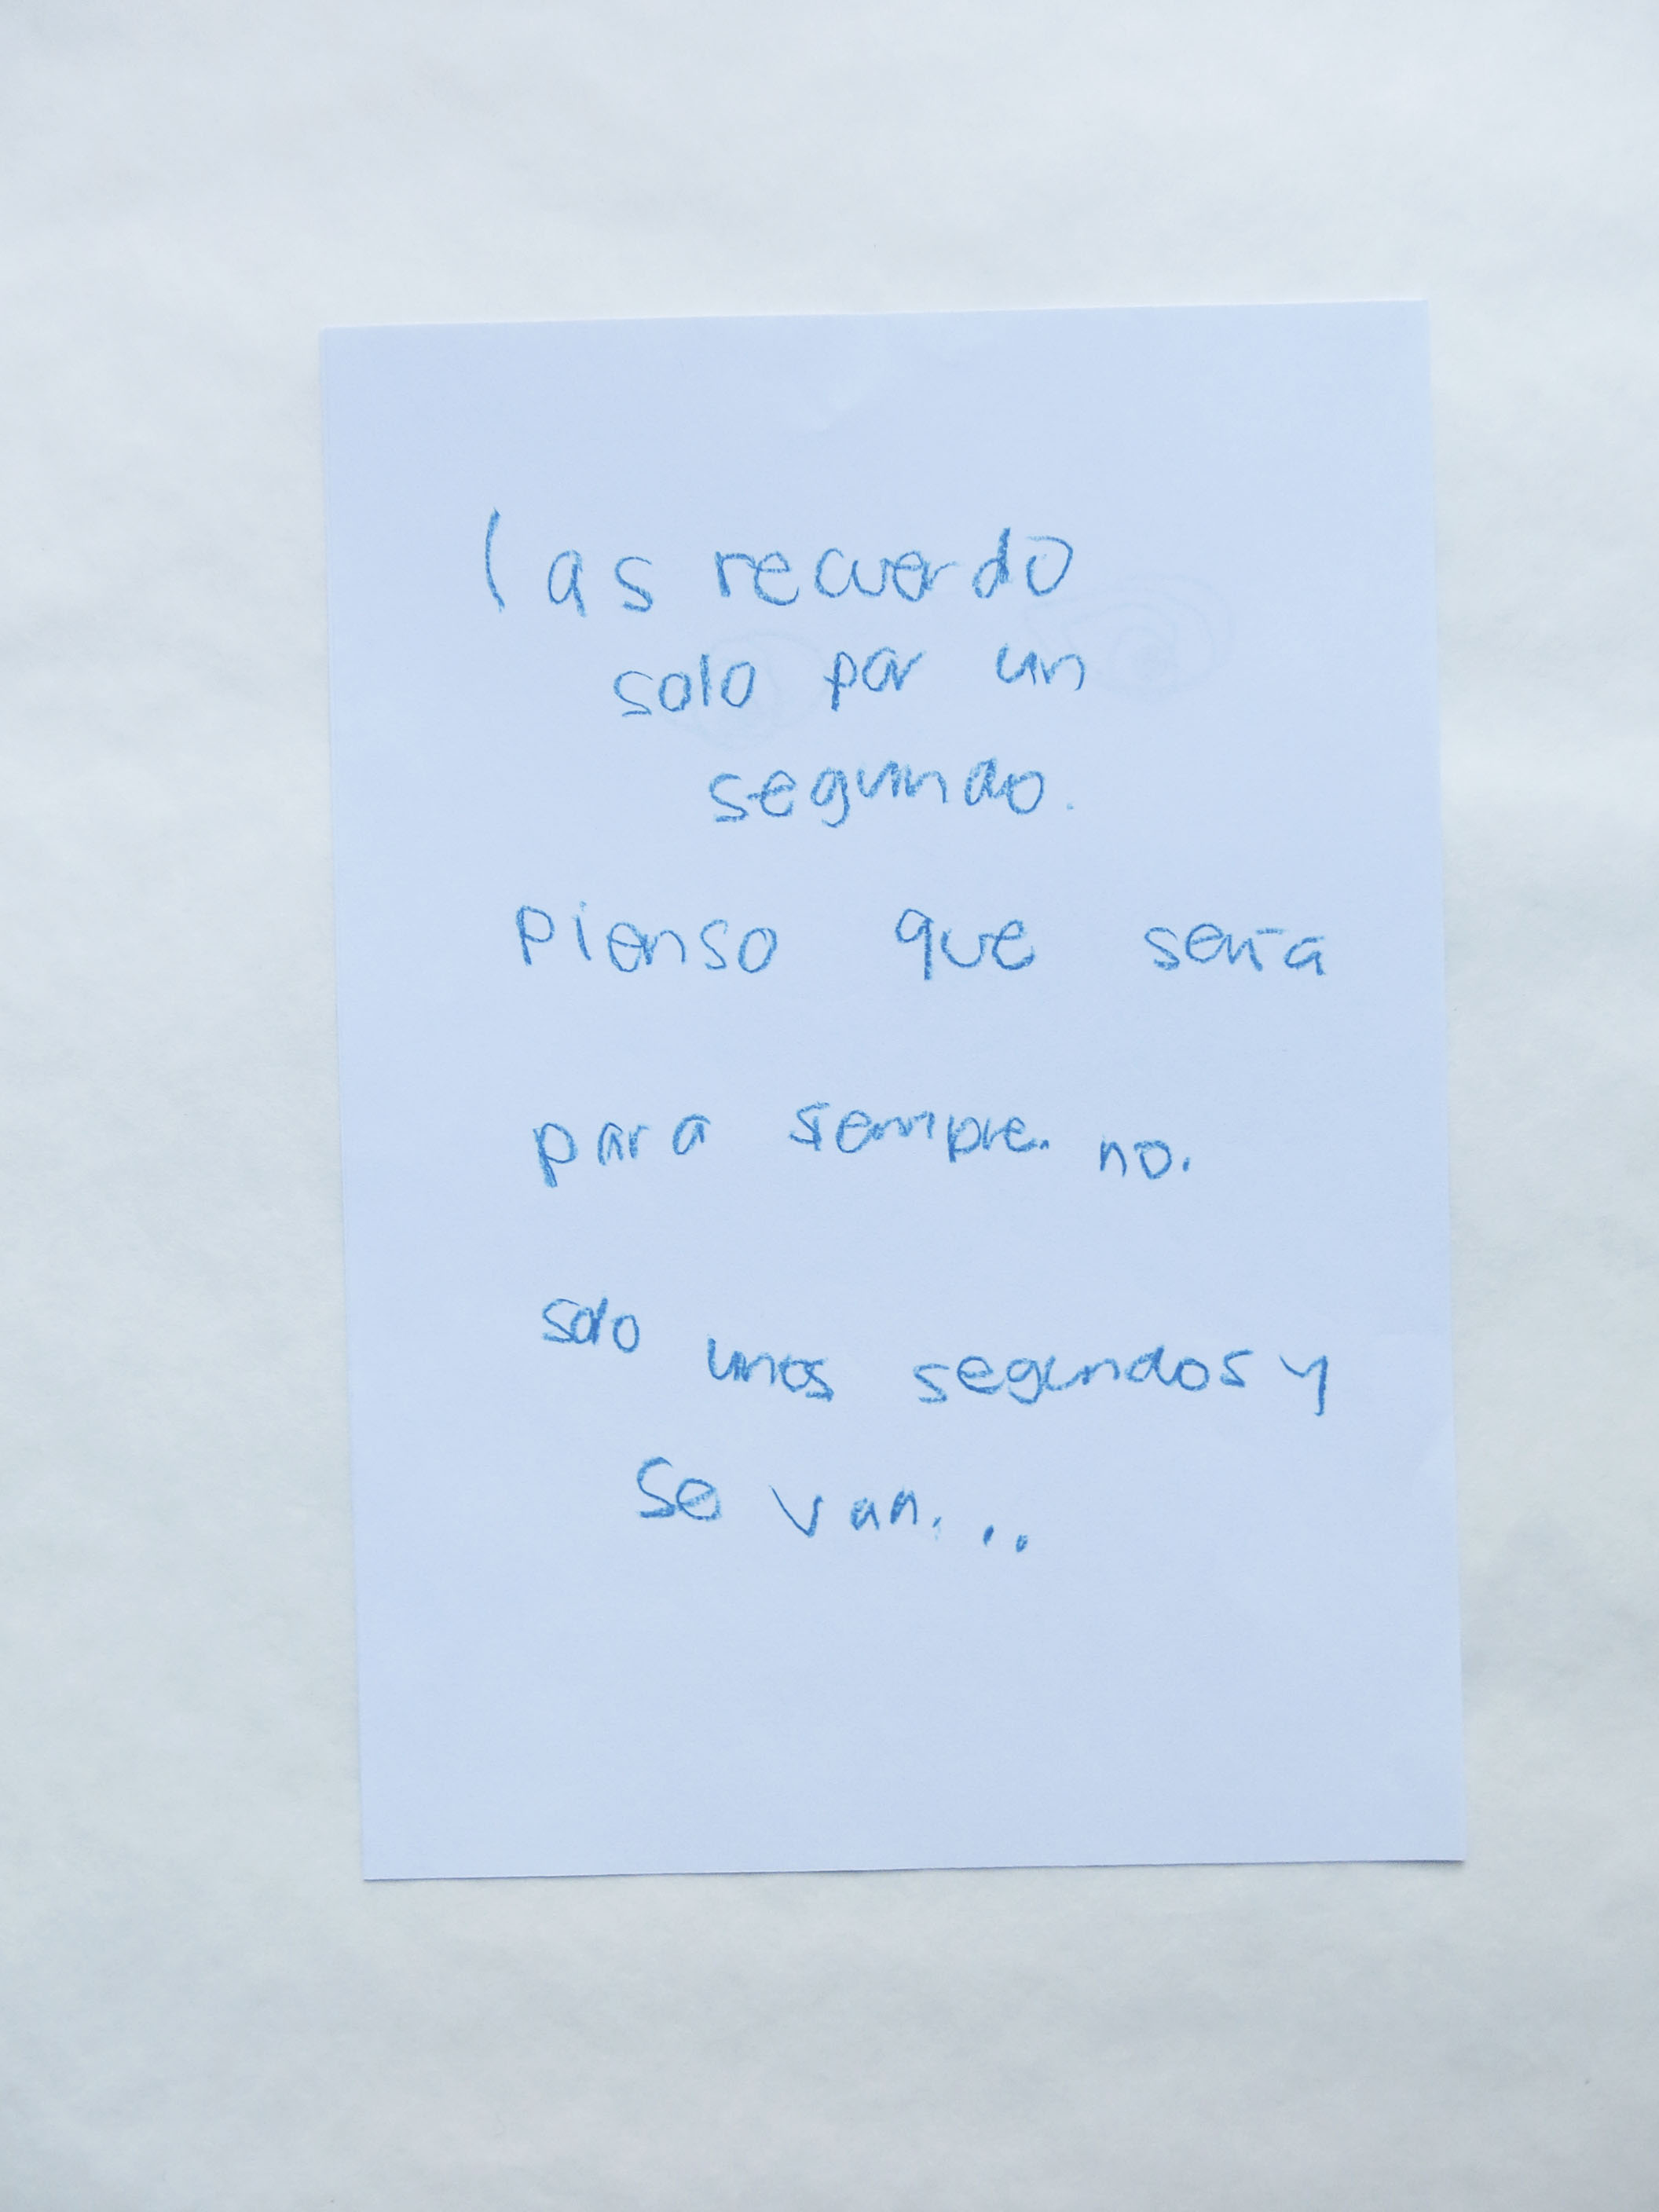 las recuerdo
solo por un
segundo.
Pienso que sería
para siempre. no.
solo unos segundos y
se van...